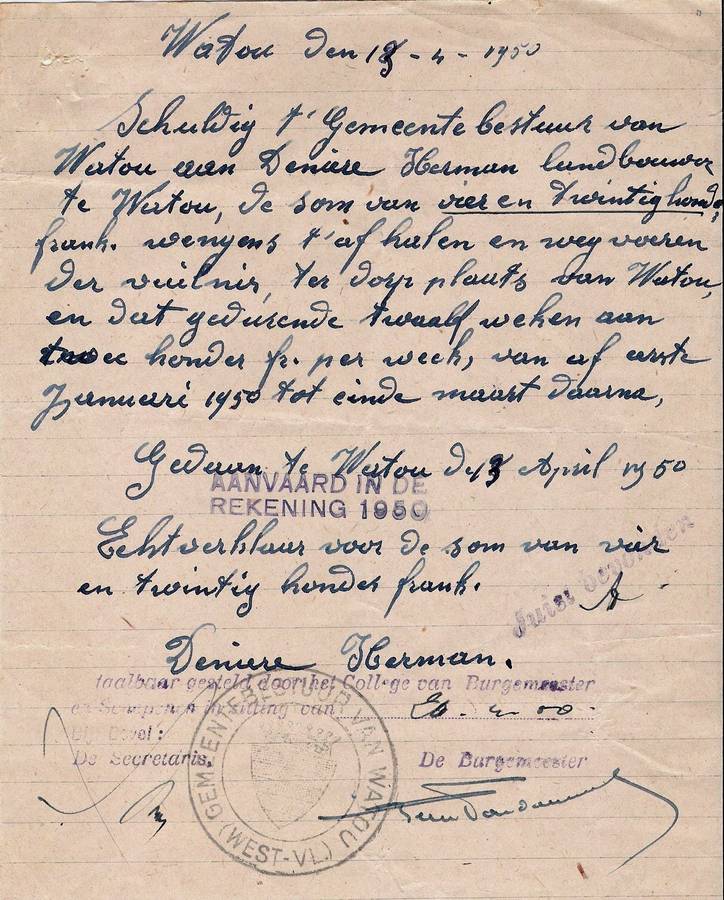 Watou den 18-4-1950
Schuldig t'Gemeentebestuur van
Watou aan Deniere Herman landbouwer
te Watou, de som van vier en twintighonde,
frank. wengens t'af halen en weg voeren
der vuilnis, ter dorp plaats van Watou,
en dat gedurende twaalf weken aan
twee honder fr. per week, van af eerste
Januari 1950 tot einde maart daarna,
Gedaan te Watou de April 1950
AANVAARD IN DE
REKENING 1950
Echtverklaar voor de som van vier
en twintig honder frank.
Juist bevonden
Deniere Herman.
taalbaar gesteld door het College van Burgemeester
en Schepenen in zitting van
Bij Bevel:
De Secretaris, De Burgemeester
GEMEENTEBESTUUR VAN WATOU
(WEST-VL.)